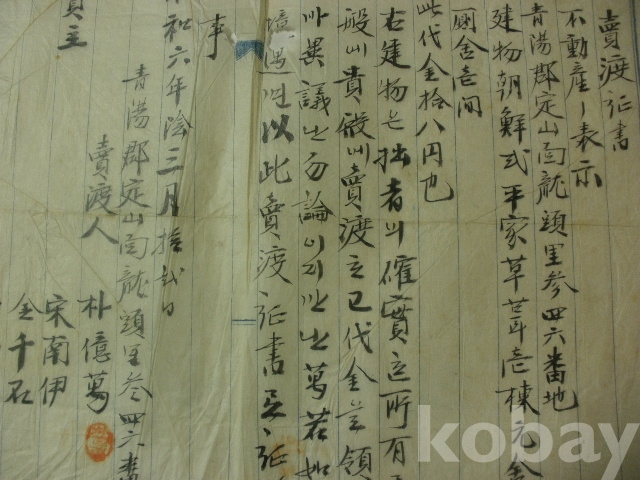 賣渡証書
不動産ノ表示
青陽郡定山面龍頭里参四六番地
建物朝鮮式平家草葺壱棟元舍
間舍壱間
此代金拾八円也
右建物은拙者의確實立所有
般에貴殿에賣渡立고代金은領
야異議난勿論이지만은萬若如
境遇면以此賣渡証書로証
事
昭和六年陰三月拾弐日
青陽郡定山面龍頭里参四六番
賣渡人
朴億萬
宋南伊
金千石
買主
kobay